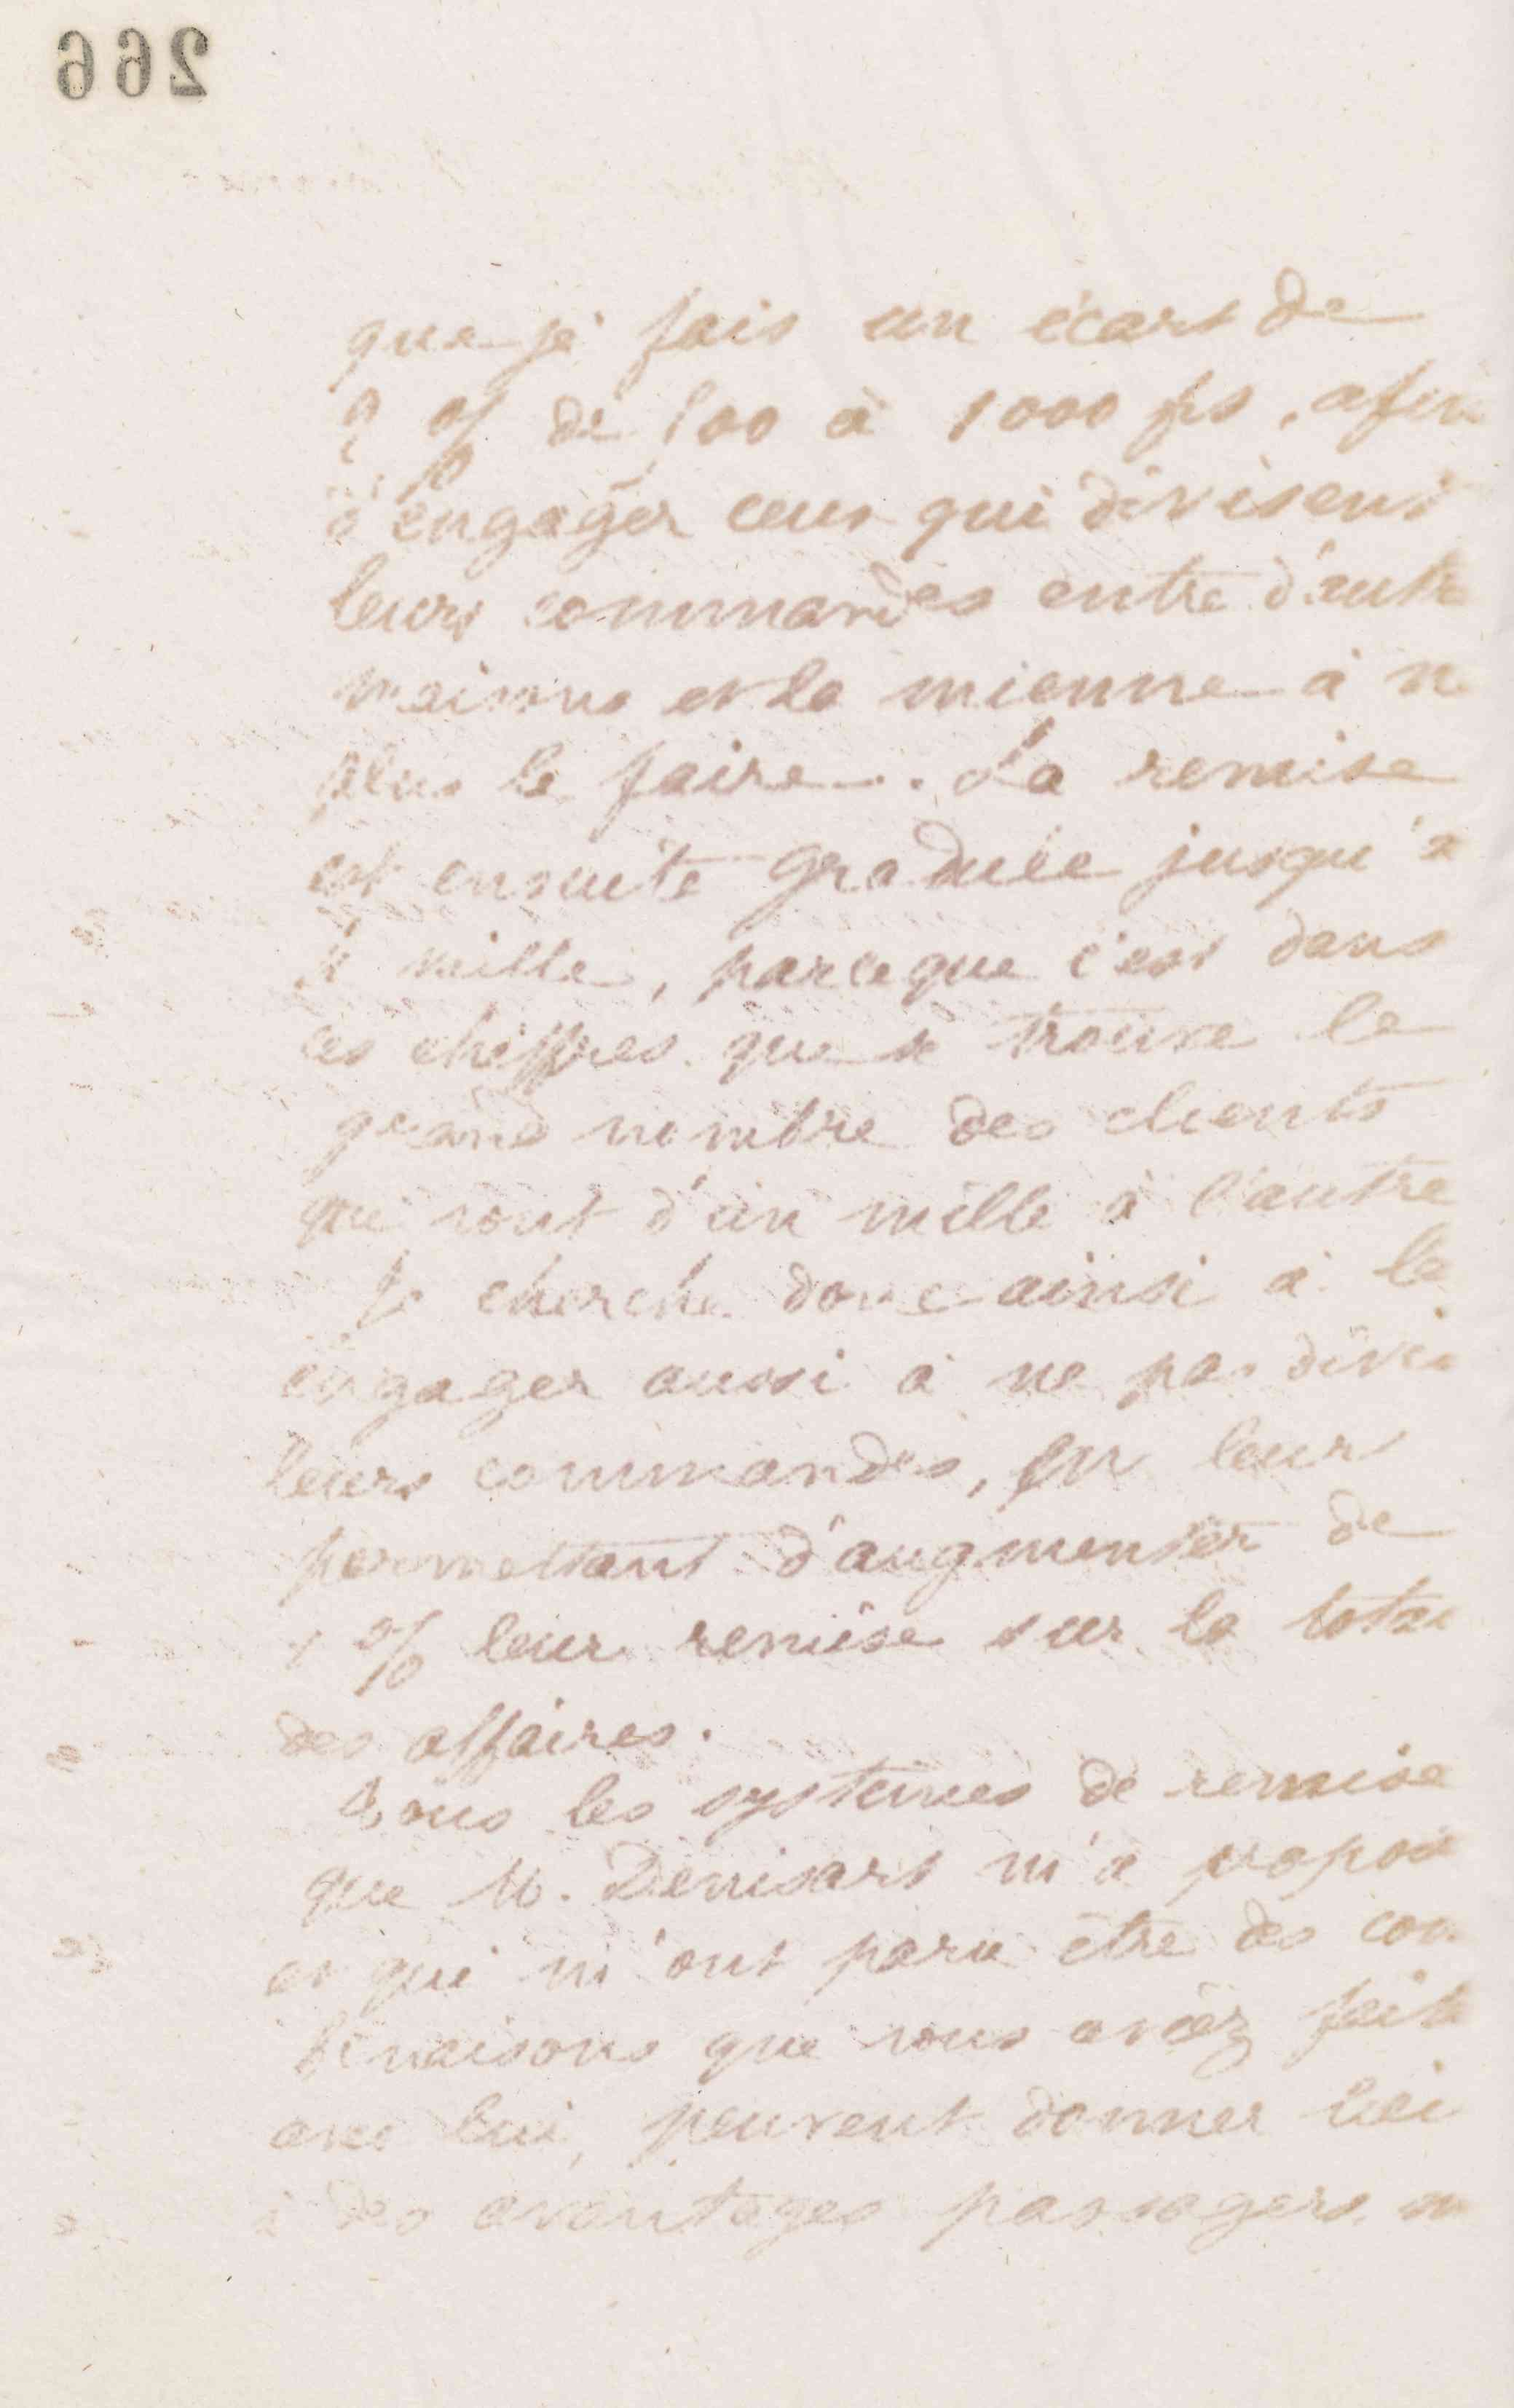 266
que je fais un écart de
2 % de 500 à 1000 frs, afin
d'engager ceux qui divisent
leurs commandes entre d'autre
maisons et la mienne à ne
plus le faire. La remise
est ensuite graduée jusqu'à
mille, parceque c'est dans
ces chiffres que se trouve le
grand nombre des clients
qui vont d'un mille à l'autre
Je cherche donc ainsi à le
engager aussi à ne pas divi
leurs commandes, en leur
permettant d'augmenter de
1 % leur remise sur le total
des affaires.
Tous les systèmes de remise
que M. Denisart m'a proposé
et qui m'ont paru être des com
binaisons que vous aviez faite
avec lui, peuvent donner lieu
à des avantages passagers,